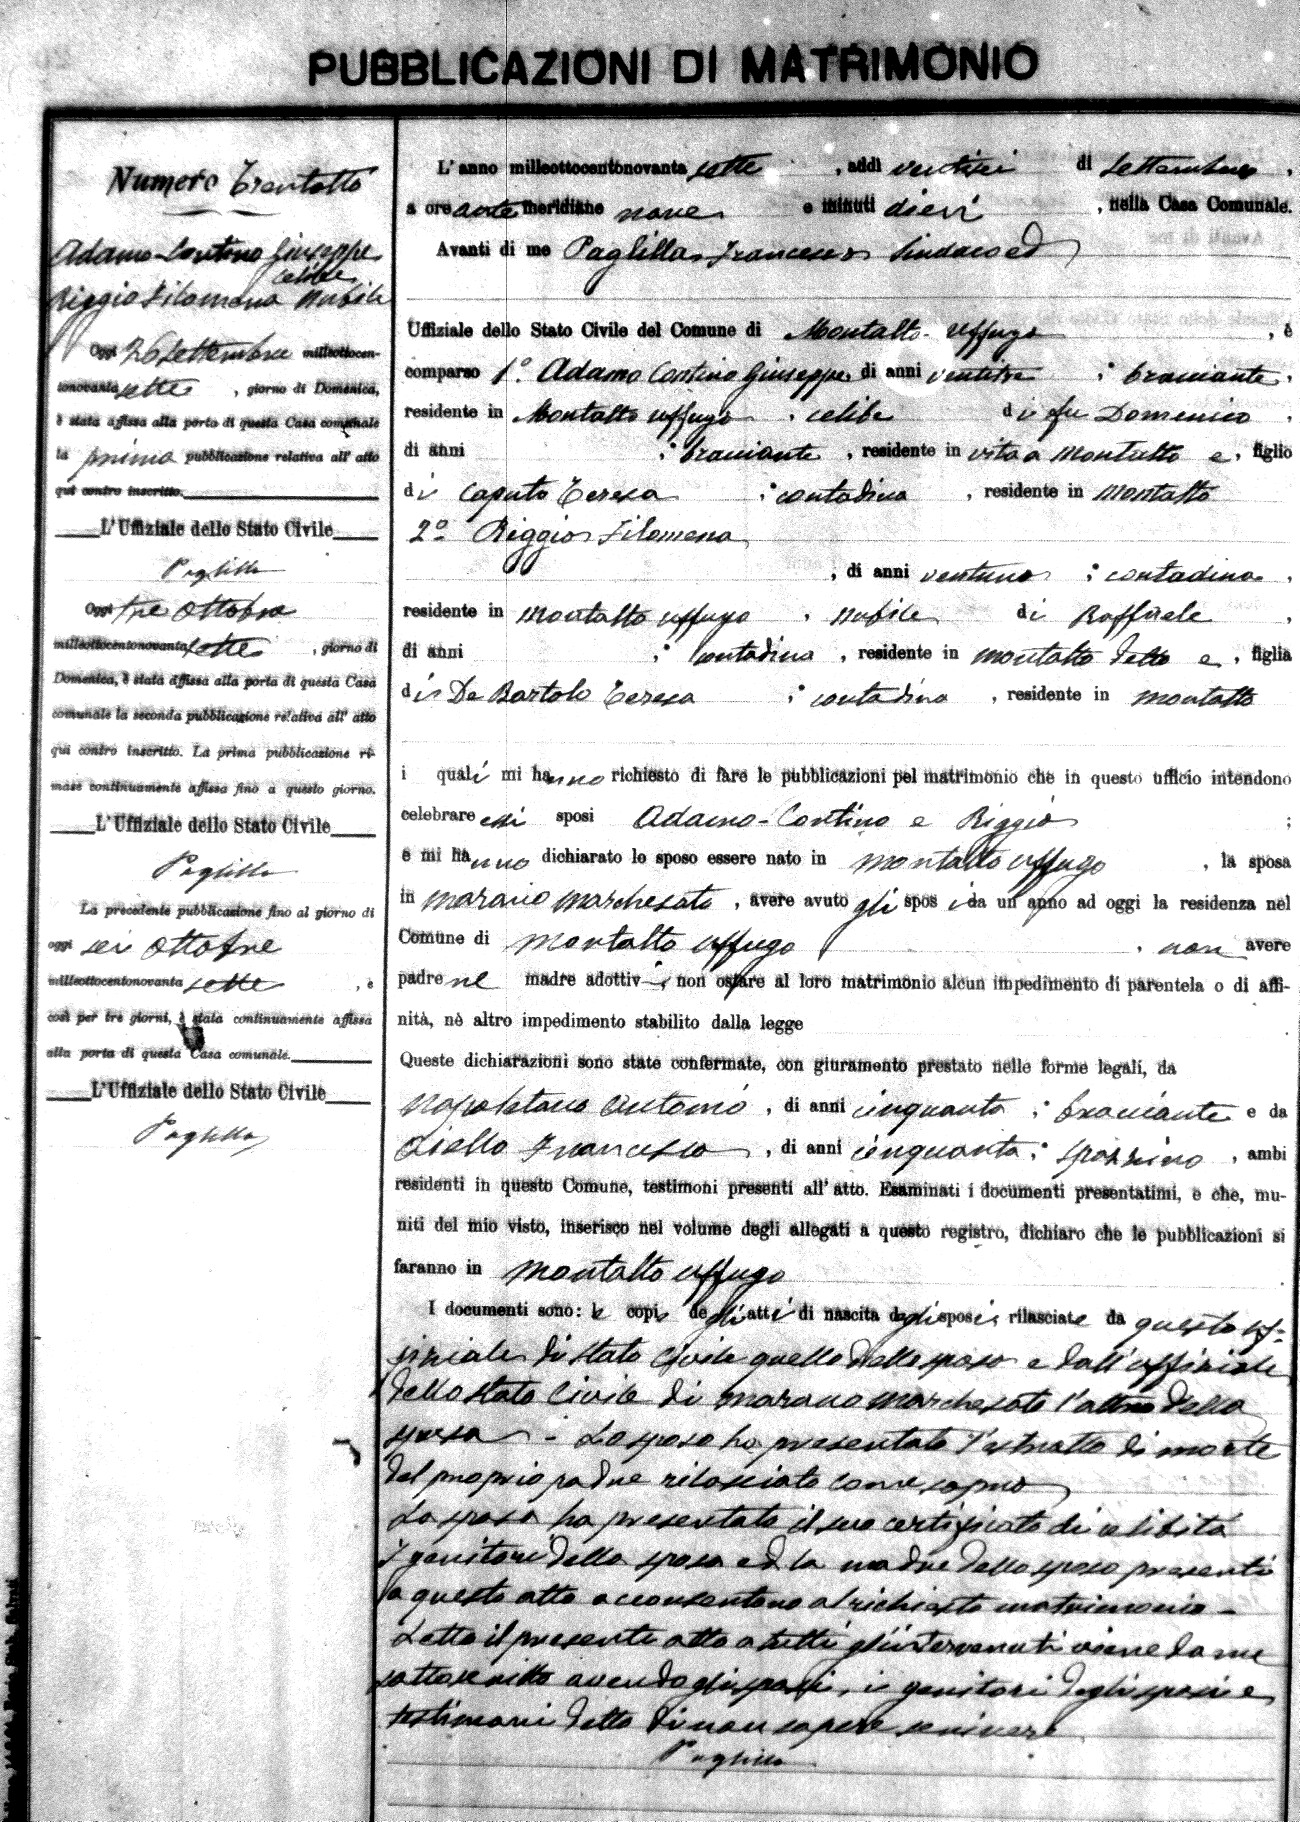 PUBBLICAZIONI DI MATRIMONIO
Numero Trentotto
Adamo-Contino Giuseppe
celibe
Riggio Filomena Nubile
Oggi 26 Settembre milleottocen-
tonovanta sette, giorno di Domenica,
è stata affissa alla porta di questa Casa comunale
la prima pubblicazione relativa all' atto
qui contro inscritto.
L'Uffiziale dello Stato Civile
Paglilla
Oggi tre Ottobre
milleottocentonovanta sette, giorno di
Domenica, è stata affissa alla porta di questa Casa
comunale la seconda pubblicazione relativa all' atto
qui contro inscritto. La prima pubblicazione ri-
mase continuamente affissa fino a questo giorno.
L'Uffiziale dello Stato Civile
Paglilla
La precedente pubblicazione fino al giorno di
oggi sei Ottobre
milleottocentonovanta sette, e
così per tre giorni, è stata continuamente affissa
alla porta di questa Casa comunale.
L'Uffiziale dello Stato Civile
Paglilla
L' anno milleottocentonovanta sette, addì ventisei di Settembre,
a ore ante meridiane nove e minuti dieci, nella Casa Comunale.
Avanti di me Paglilla Francesco Sindaco ed
Uffiziale dello Stato Civile del Comune di Montalto-Uffugo, è
comparso 1º. Adamo Contino Giuseppe di anni ventitre; bracciante,
residente in Montalto uffugo, celibe di fu Domenico,
di anni ; bracciante, residente in vita a Montalto e, figlio
di Caputo Teresa ; contadina, residente in Montalto
2º Riggio Filomena
, di anni ventuno ; contadina,
residente in Montalto uffugo, Nubile di Raffaele,
di anni ; contadino, residente in Montalto detto e, figlia
di De Bartolo Teresa ; contadina, residente in Montalto
i quali mi hanno richiesto di fare le pubblicazioni pel matrimonio che in questo ufficio intendono
celebrare essi sposi Adamo-Contino e Riggio ;
e mi hanno dichiarato lo sposo essere nato in Montalto Uffugo, la sposa
in Marano Marchesato, avere avuto gli sposi da un anno ad oggi la residenza nel
Comune di Montalto uffugo, non avere
padre nè madre adottivi, non ostare al loro matrimonio alcun impedimento di parentela o di affi-
nità, nè altro impedimento stabilito dalla legge
Queste dichiarazioni sono state confermate, con giuramento prestato nelle forme legali, da
Napoletano Antonio, di anni cinquanta ; bracciante e da
Aiello Francesco, di anni cinquanta ; spazzino, ambi
residenti in questo Comune, testimoni presenti all' atto. Esaminati i documenti presentatimi, e che, mu-
niti del mio visto, inserisco nel volume degli allegati a questo registro, dichiaro che le pubblicazioni si
faranno in Montalto uffugo
I documenti sono: le copie degli atti di nascita degli sposi, rilasciate da questo Uf-
fiziale di stato Civile quello dello sposo e dall'uffiziale
dello stato Civile di Marano Marchesato l'altro della
sposa - Lo sposo ha presentato l'estratto di morte
del proprio padre rilasciato come sopra
Lo sposo ha presentato il suo certificato di celibità
I genitori della sposa ed la madre dello sposo presenti
a questo atto acconsentono al richiesto matrimonio -
Letto il presente atto a tutti gl'intervenuti viene da me
sottoscritto avendo gli sposi, i genitori degli sposi e
testimoni detto di non sapere scrivere
Paglilla